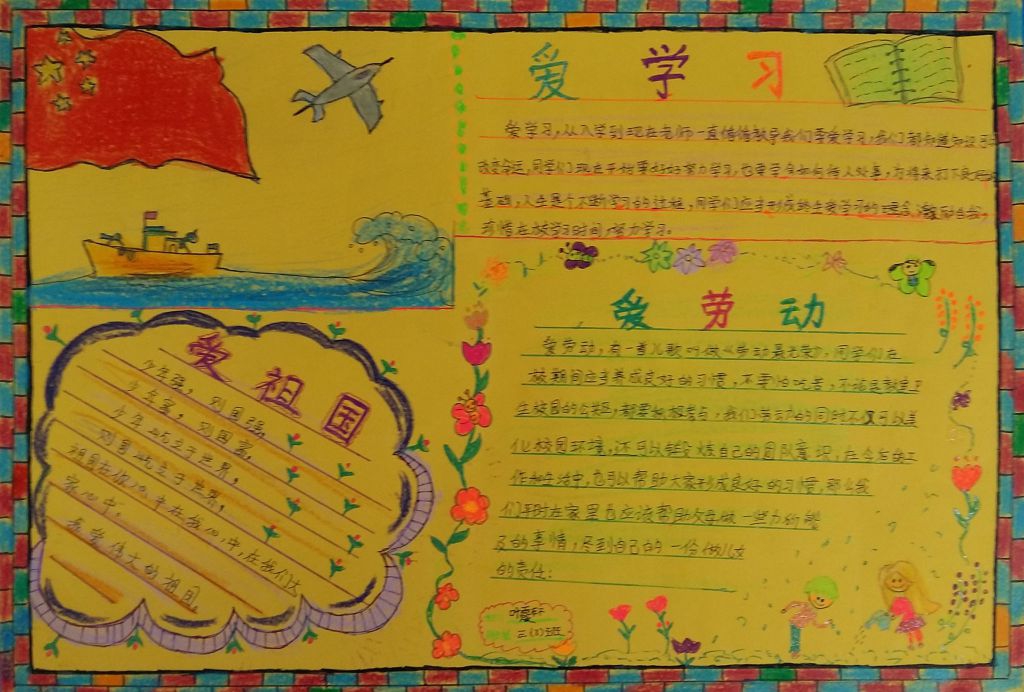 爱学习
爱学习，从入学到现在老师一直谆谆教导我们要爱学习，我们都知道知识
改变命运，同学们现在不但要好好努力学习，也要学会如何待人处事，为将来打下良好的
基础，人生是个不断学习的过程，同学们应当形成终生爱学习的理念，激励自我，
珍惜在校学习时间，努力学习。
爱劳动
爱劳动，有一首儿歌叫做《劳动最光荣》，同学们在
校期间应当养成良好的习惯，不要怕吃苦，不论是教室卫
生校园的公共区，都要积极参与，我们劳动的同时不仅可以美
化校园环境，还可以锻炼自己的团队意识，在今后的工
作和生活中，也可以帮助大家形成良好的习惯，那么我
们平时在家里也应该帮助父母做一些力所能
及的事情，尽到自己的一份做儿女
的责任：
爱祖国
少年强，则国强，
少年富，则国富，
少年屹立于世界，
则国屹立于世界，
祖国在你心中在我心中，在我们大
家心中，
我爱伟大的祖国。
三(3)班